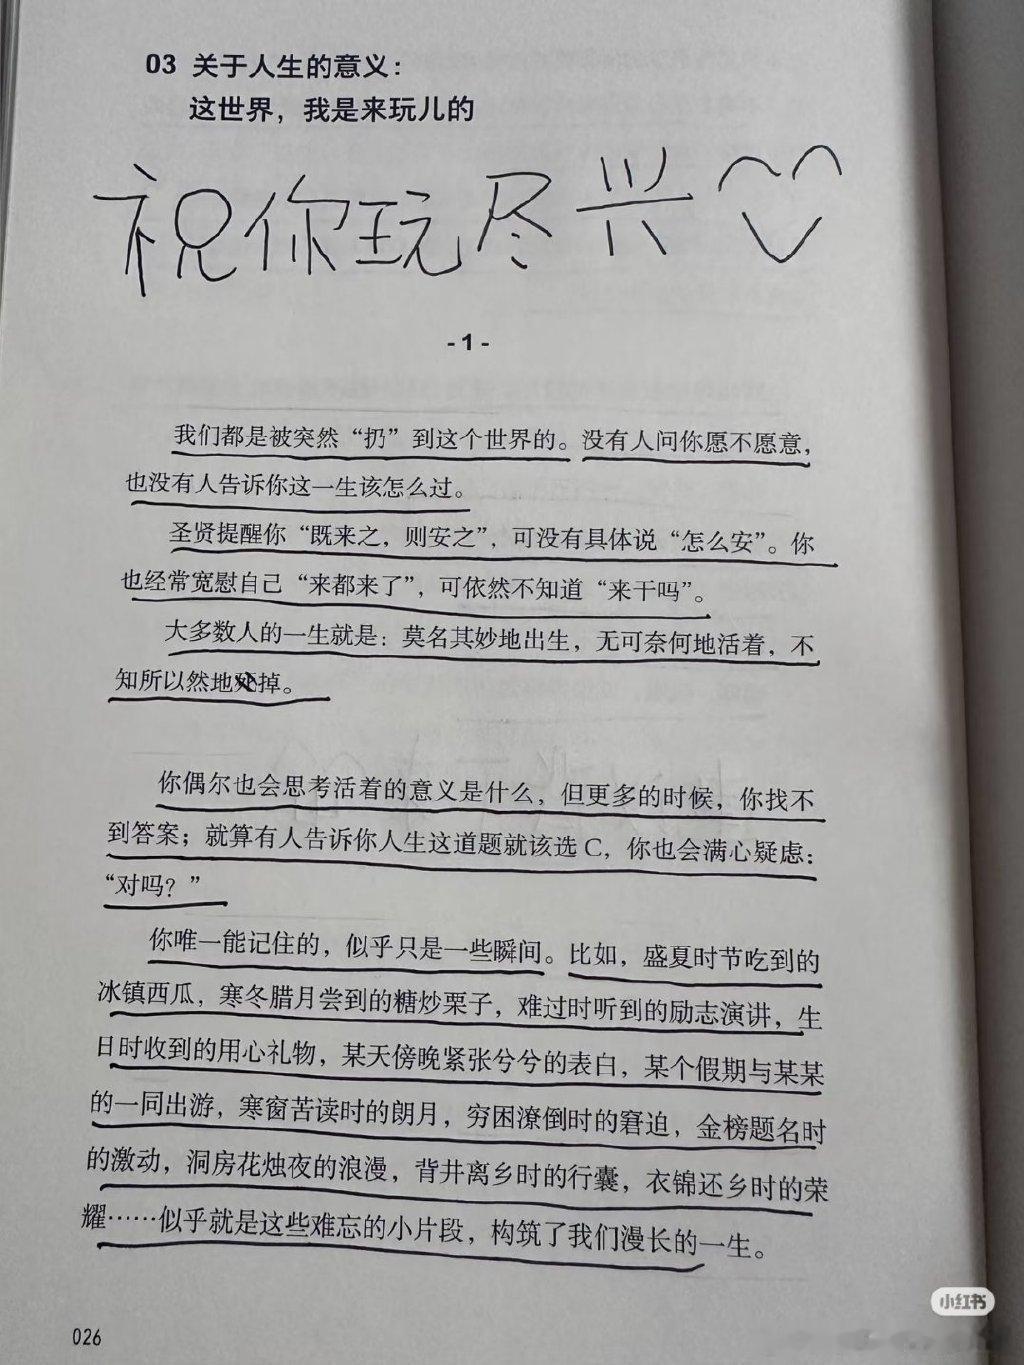 03 关于人生的意义：
这世界，我是来玩儿的
祝你玩尽兴
- 1 -
我们都是被突然“扔”到这个世界的。没有人问你愿不愿意，
也没有人告诉你这一生该怎么过。
圣贤提醒你“既来之，则安之”，可没有具体说“怎么安”。你
也经常宽慰自己“来都来了”，可依然不知道“来干吗”。
大多数人的一生就是：莫名其妙地出生，无可奈何地活着，不
知所以然地掉。
你偶尔也会思考活着的意义是什么，但更多的时候，你找不
到答案；就算有人告诉你人生这道题就该选 C，你也会满心疑虑：
“对吗？”
你唯一能记住的，似乎只是一些瞬间。比如，盛夏时节吃到的
冰镇西瓜，寒冬腊月尝到的糖炒栗子，难过时听到的励志演讲，生
日时收到的用心礼物，某天傍晚紧张兮兮的表白，某个假期与某某
的一同出游，寒窗苦读时的朗月，穷困潦倒时的窘迫，金榜题名时
的激动，洞房花烛夜的浪漫，背井离乡时的行囊，衣锦还乡时的荣
耀……似乎就是这些难忘的小片段，构筑了我们漫长的一生。
小红书
026